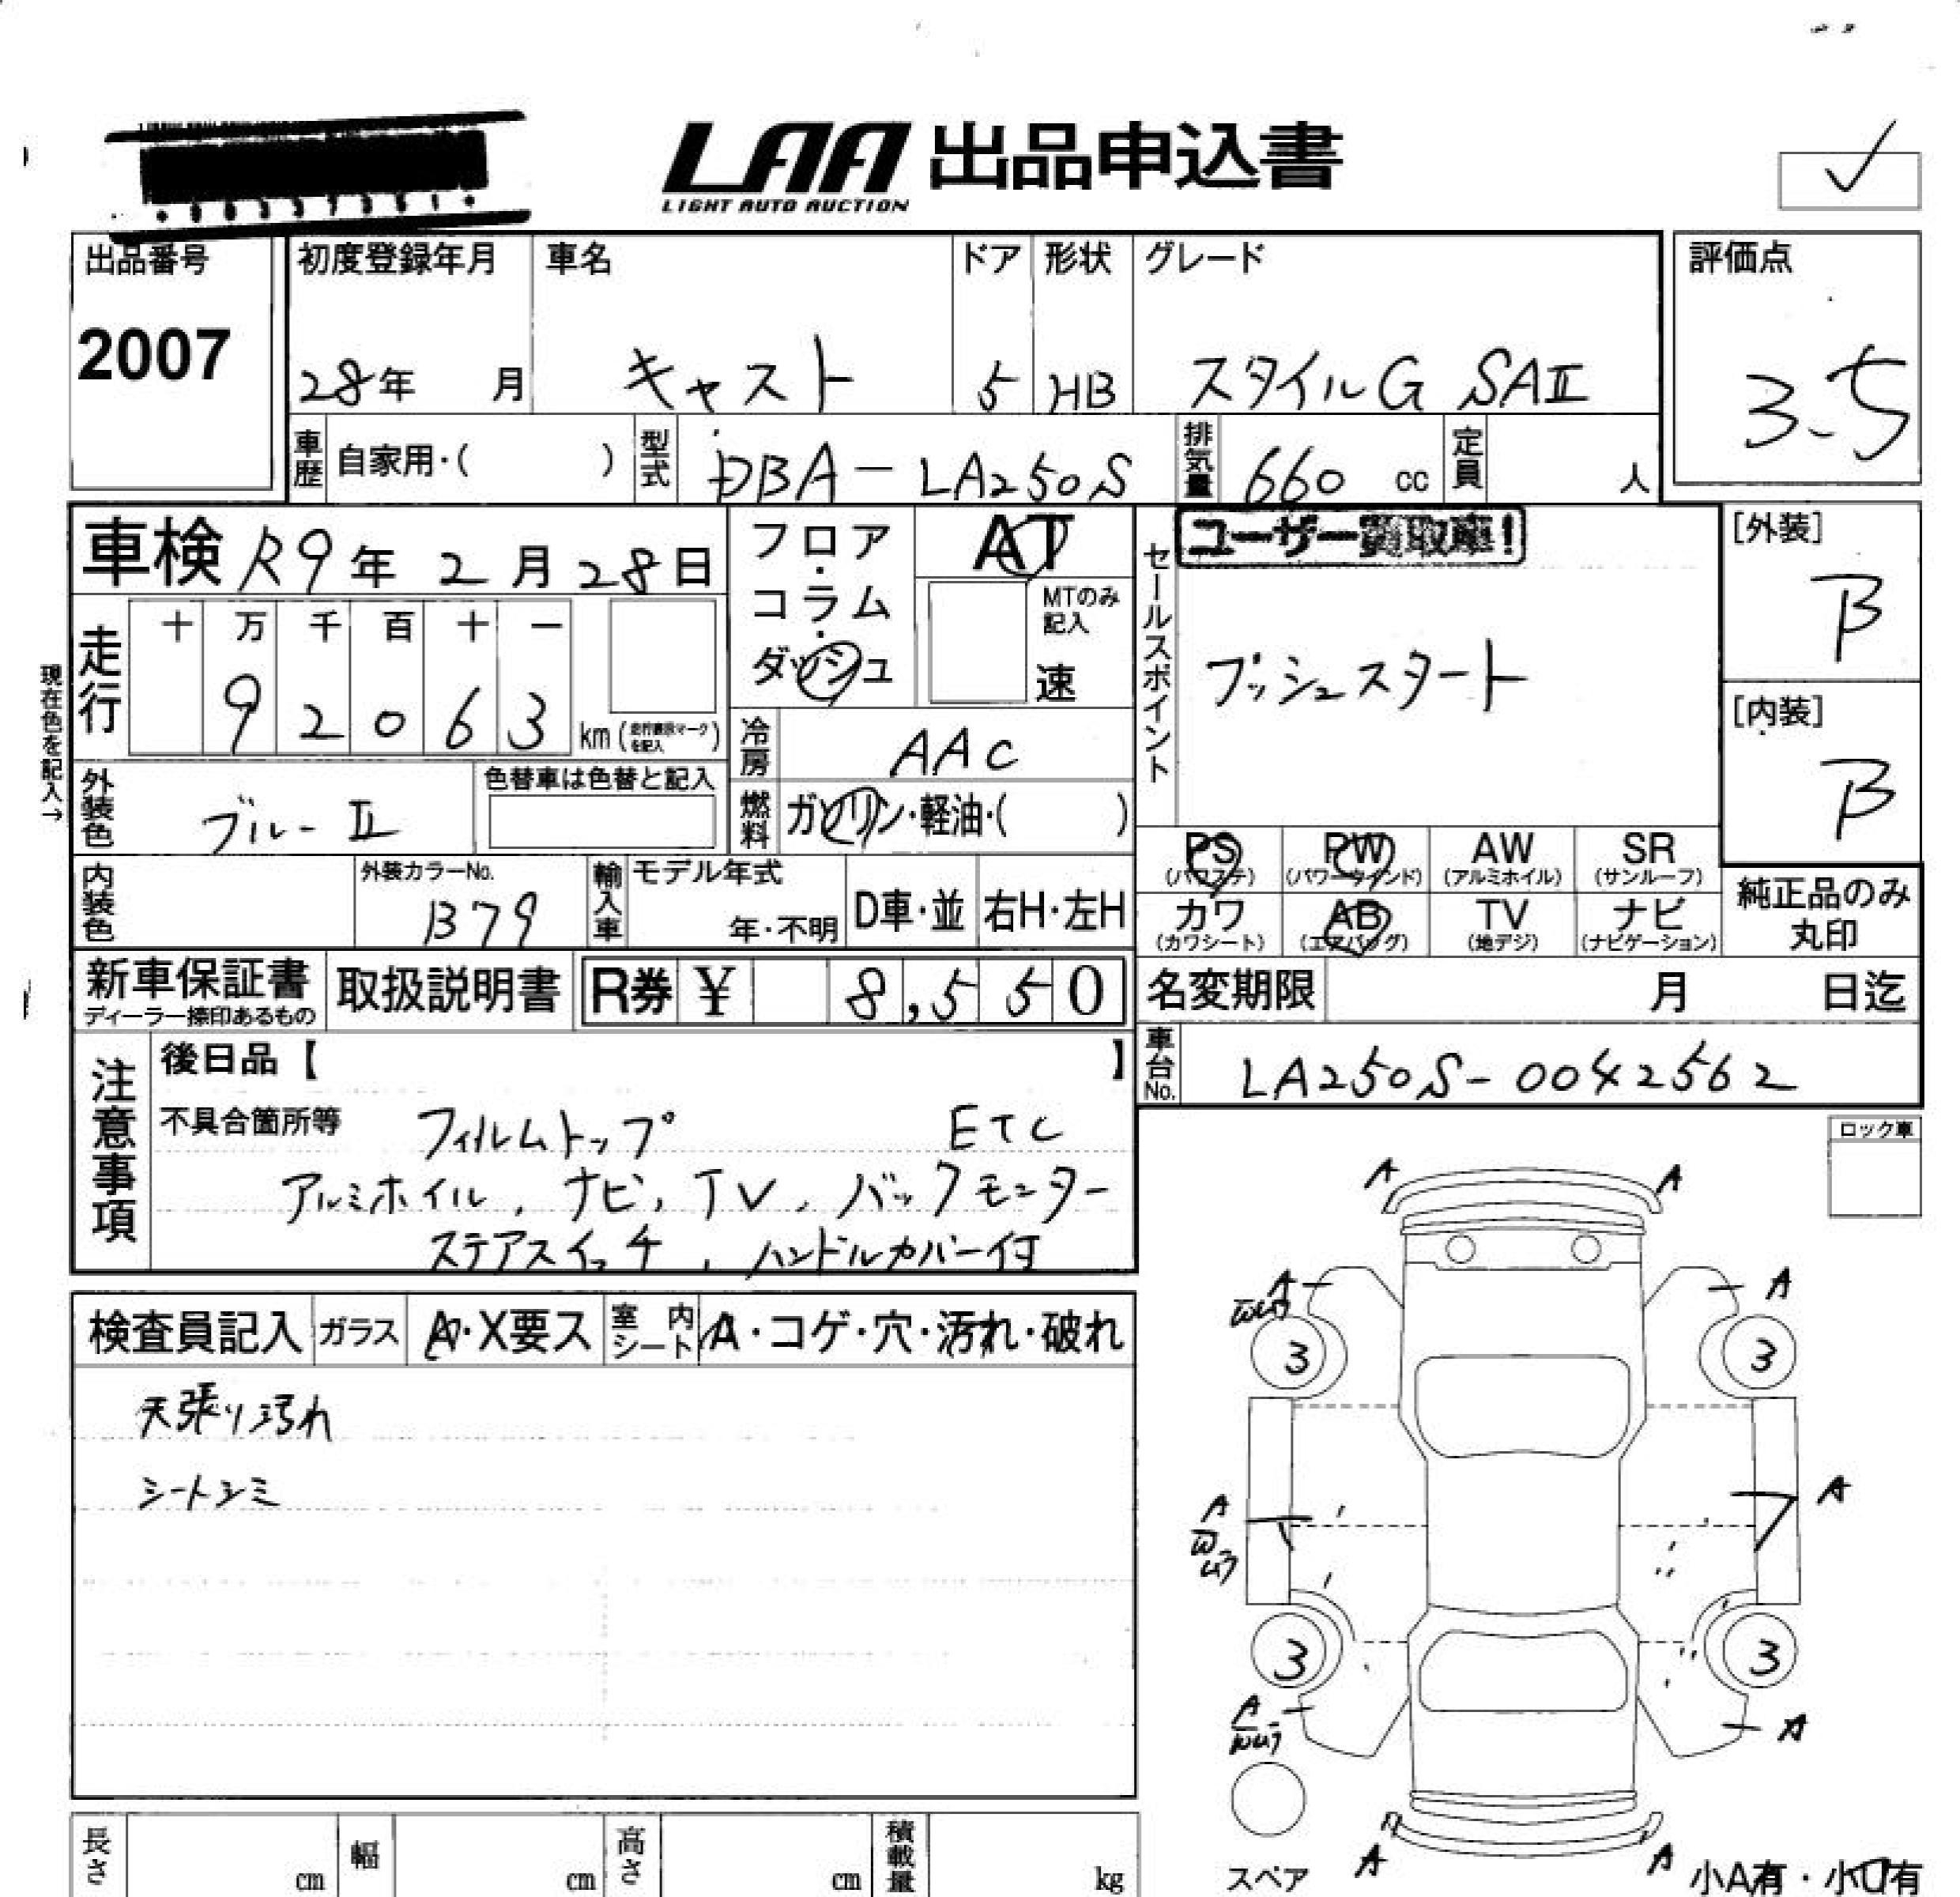 LAA 出品申込書
LIGHT AUTO AUCTION
出品番号 2007
初度登録年月 28年 月
車名 キャスト
ドア 5
形状 HB
グレード スタイルG SAⅡ
評価点 3.5
車歴 自家用・( )
型式 DBA-LA250S
排気量 660 cc
定員 人
車検 R9年 2月 28日
フロア・コラム・ダッシュ
AT
MTのみ記入
速
セールスポイント
ユーザー買取車!
プッシュスタート
[外装] B
[内装] B
現在色を記入→
走行 十 万 千 百 十 一
9 2 0 6 3 km
冷房 AAC
外装色 ブルーⅡ
色替車は色替と記入
燃料 ガソリン・軽油・( )
PS (パワステ)
PW (パワーウインド)
AW (アルミホイル)
SR (サンルーフ)
カワ (カワシート)
AB (エアバッグ)
TV (地デジ)
ナビ (ナビゲーション)
純正品のみ
丸印
内装色
外装カラーNo. B79
輸入車 モデル年式 年・不明
D車・並
右H・左H
新車保証書
ディーラー捺印あるもの
取扱説明書
R券 ¥ 8,550
名変期限 月 日迄
車台No. LA250S-0042562
注意事項
後日品【 】
不具合箇所等 フィルムトップ ETC
アルミホイル, ナビ, TV, バックモニター
ステアスイッチ, ハンドルカバー付
ロック車
検査員記入
ガラス A・X要ス
室内シート A・コゲ・穴・汚れ・破れ
天張り汚れ
シートシミ
A A
A A
3 3
A A
3 3
A A
A A
スペア
小A有・小U有
長さ cm
幅 cm
高さ cm
積載量 kg